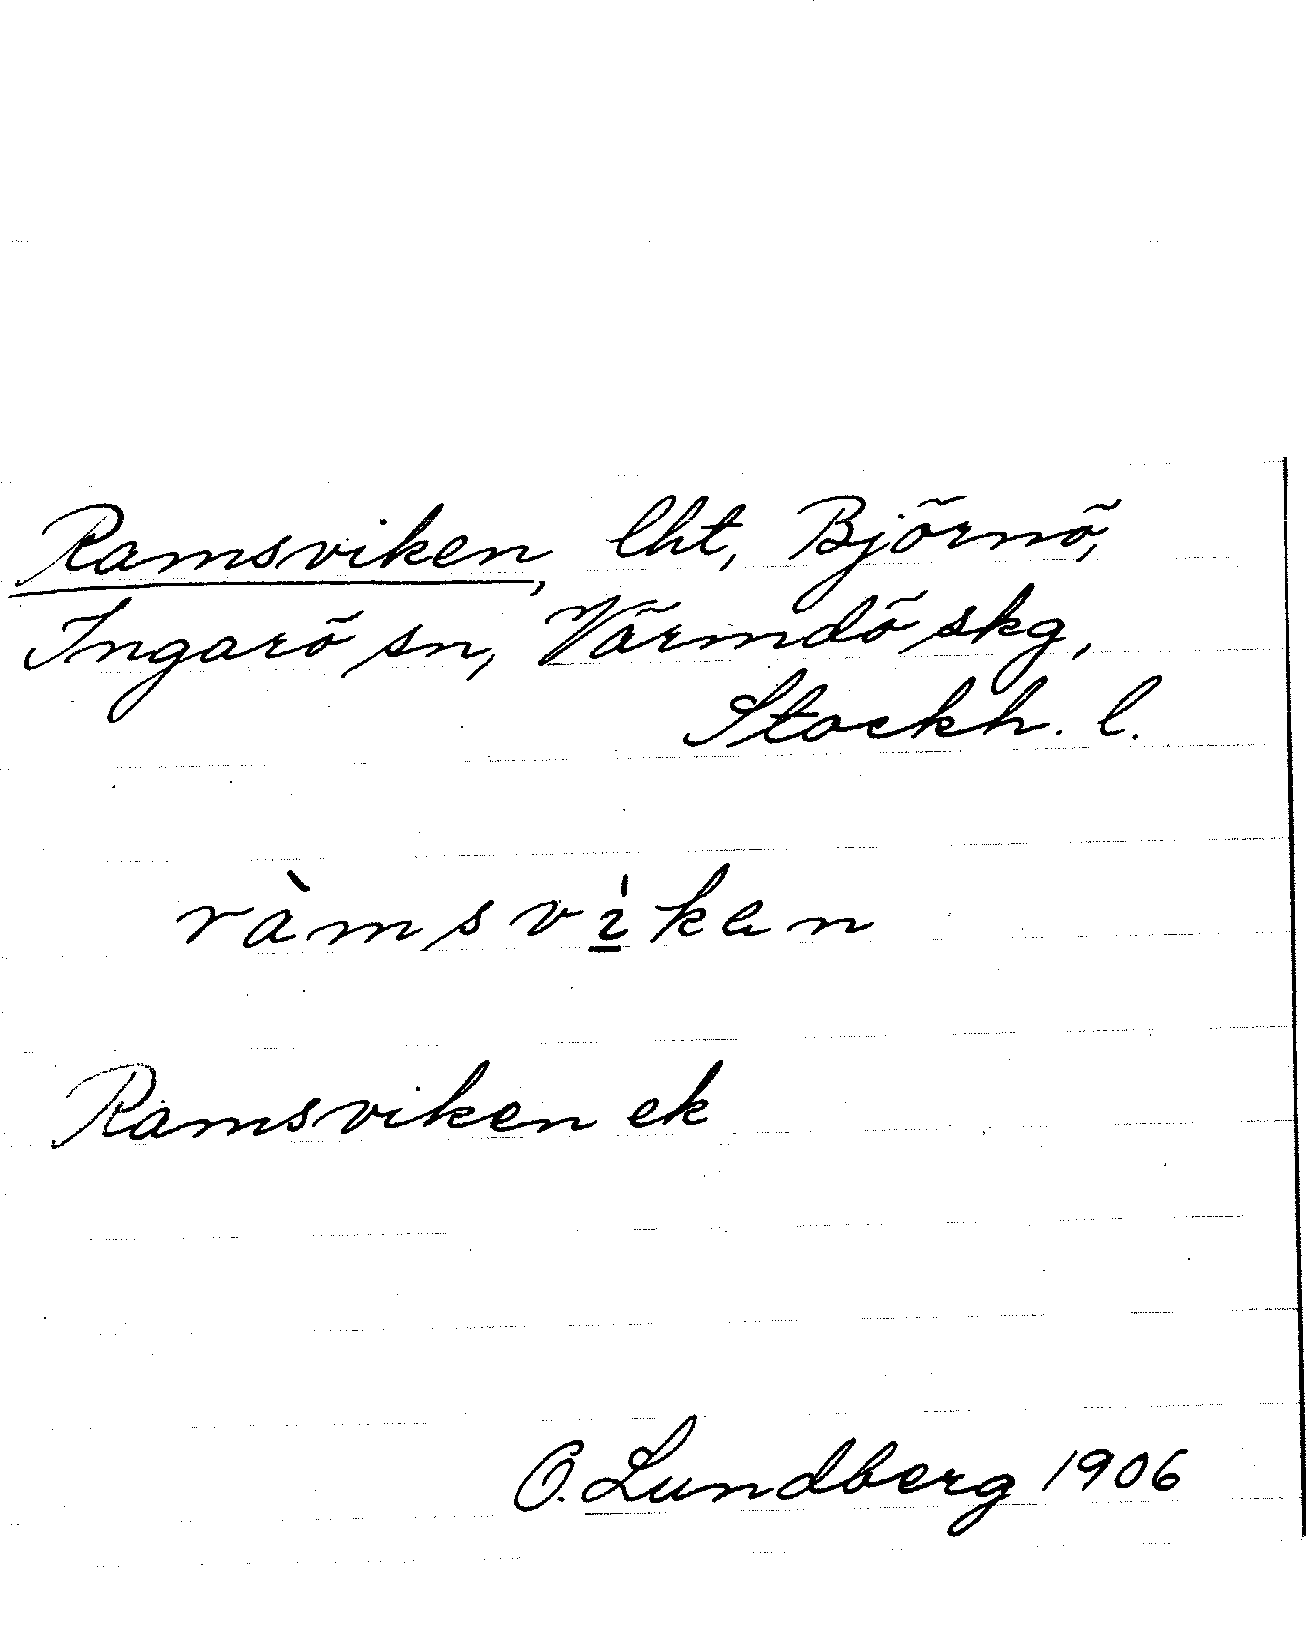 Ramsviken, lht, Björnö,
Ingarö sn, Värmdö skg,
Stockh. l.
ràmsvi̲ken
Ramsviken ek
O. Lundberg 1906